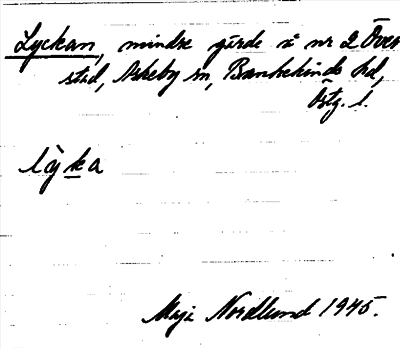 Lyckan, mindre gärde å nr 2 Över
stad, Askeby sn, Bankekinds hd,
Östg. l.
lỳka
Maja Nordlund 1945.